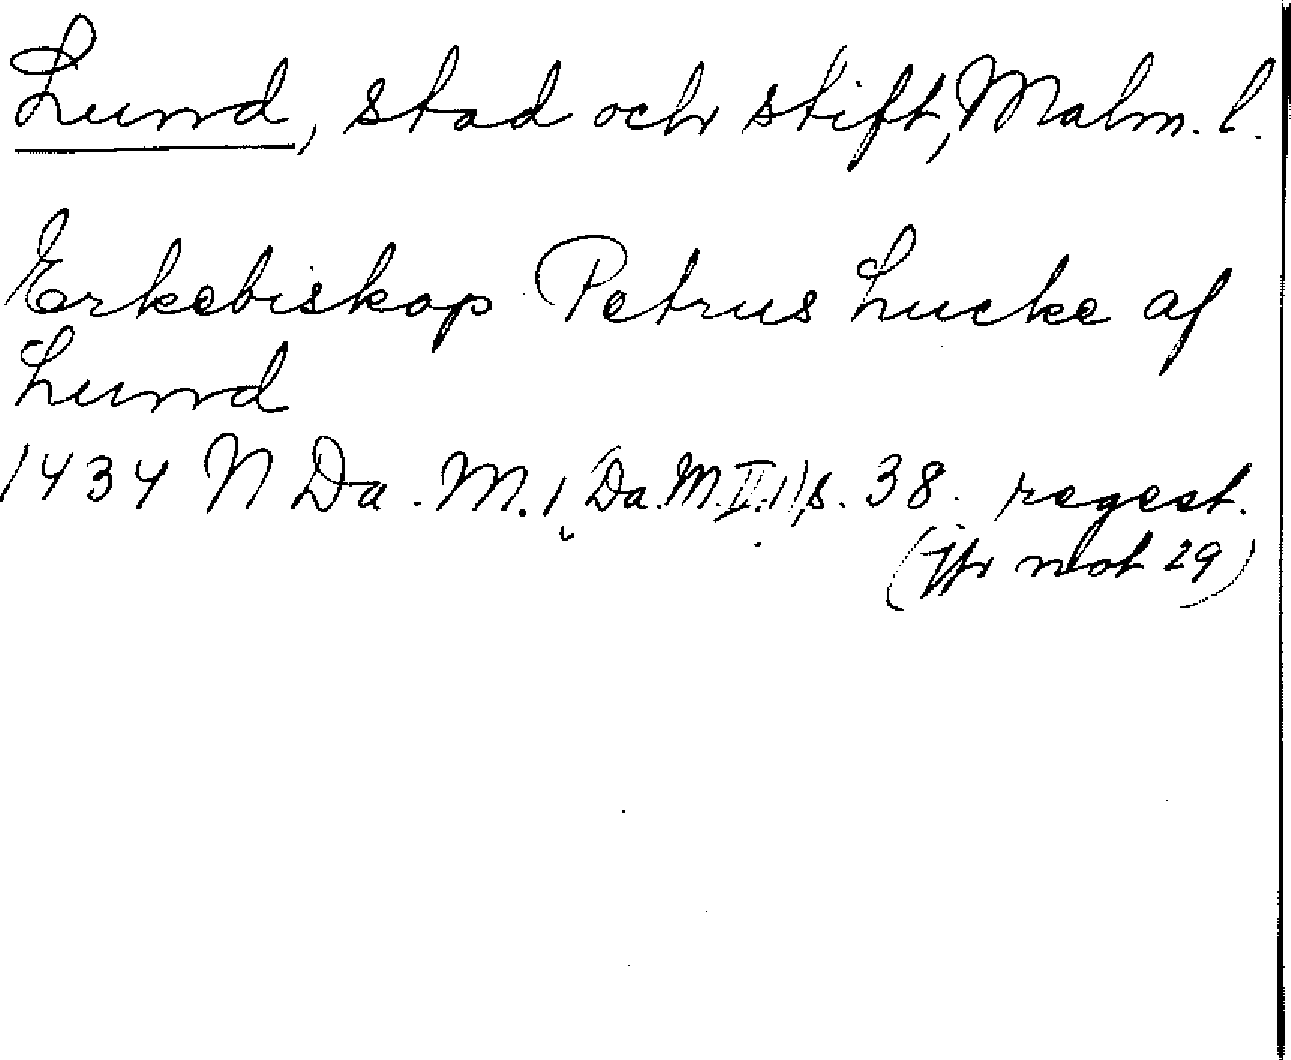 Lund, stad och stift, Malm. l.
Erkebiskop Petrus Lucke af
Lund
1434 N Da. M. 1, (Da. M. II. 1) s. 38. regest.
(Jfr not 29)